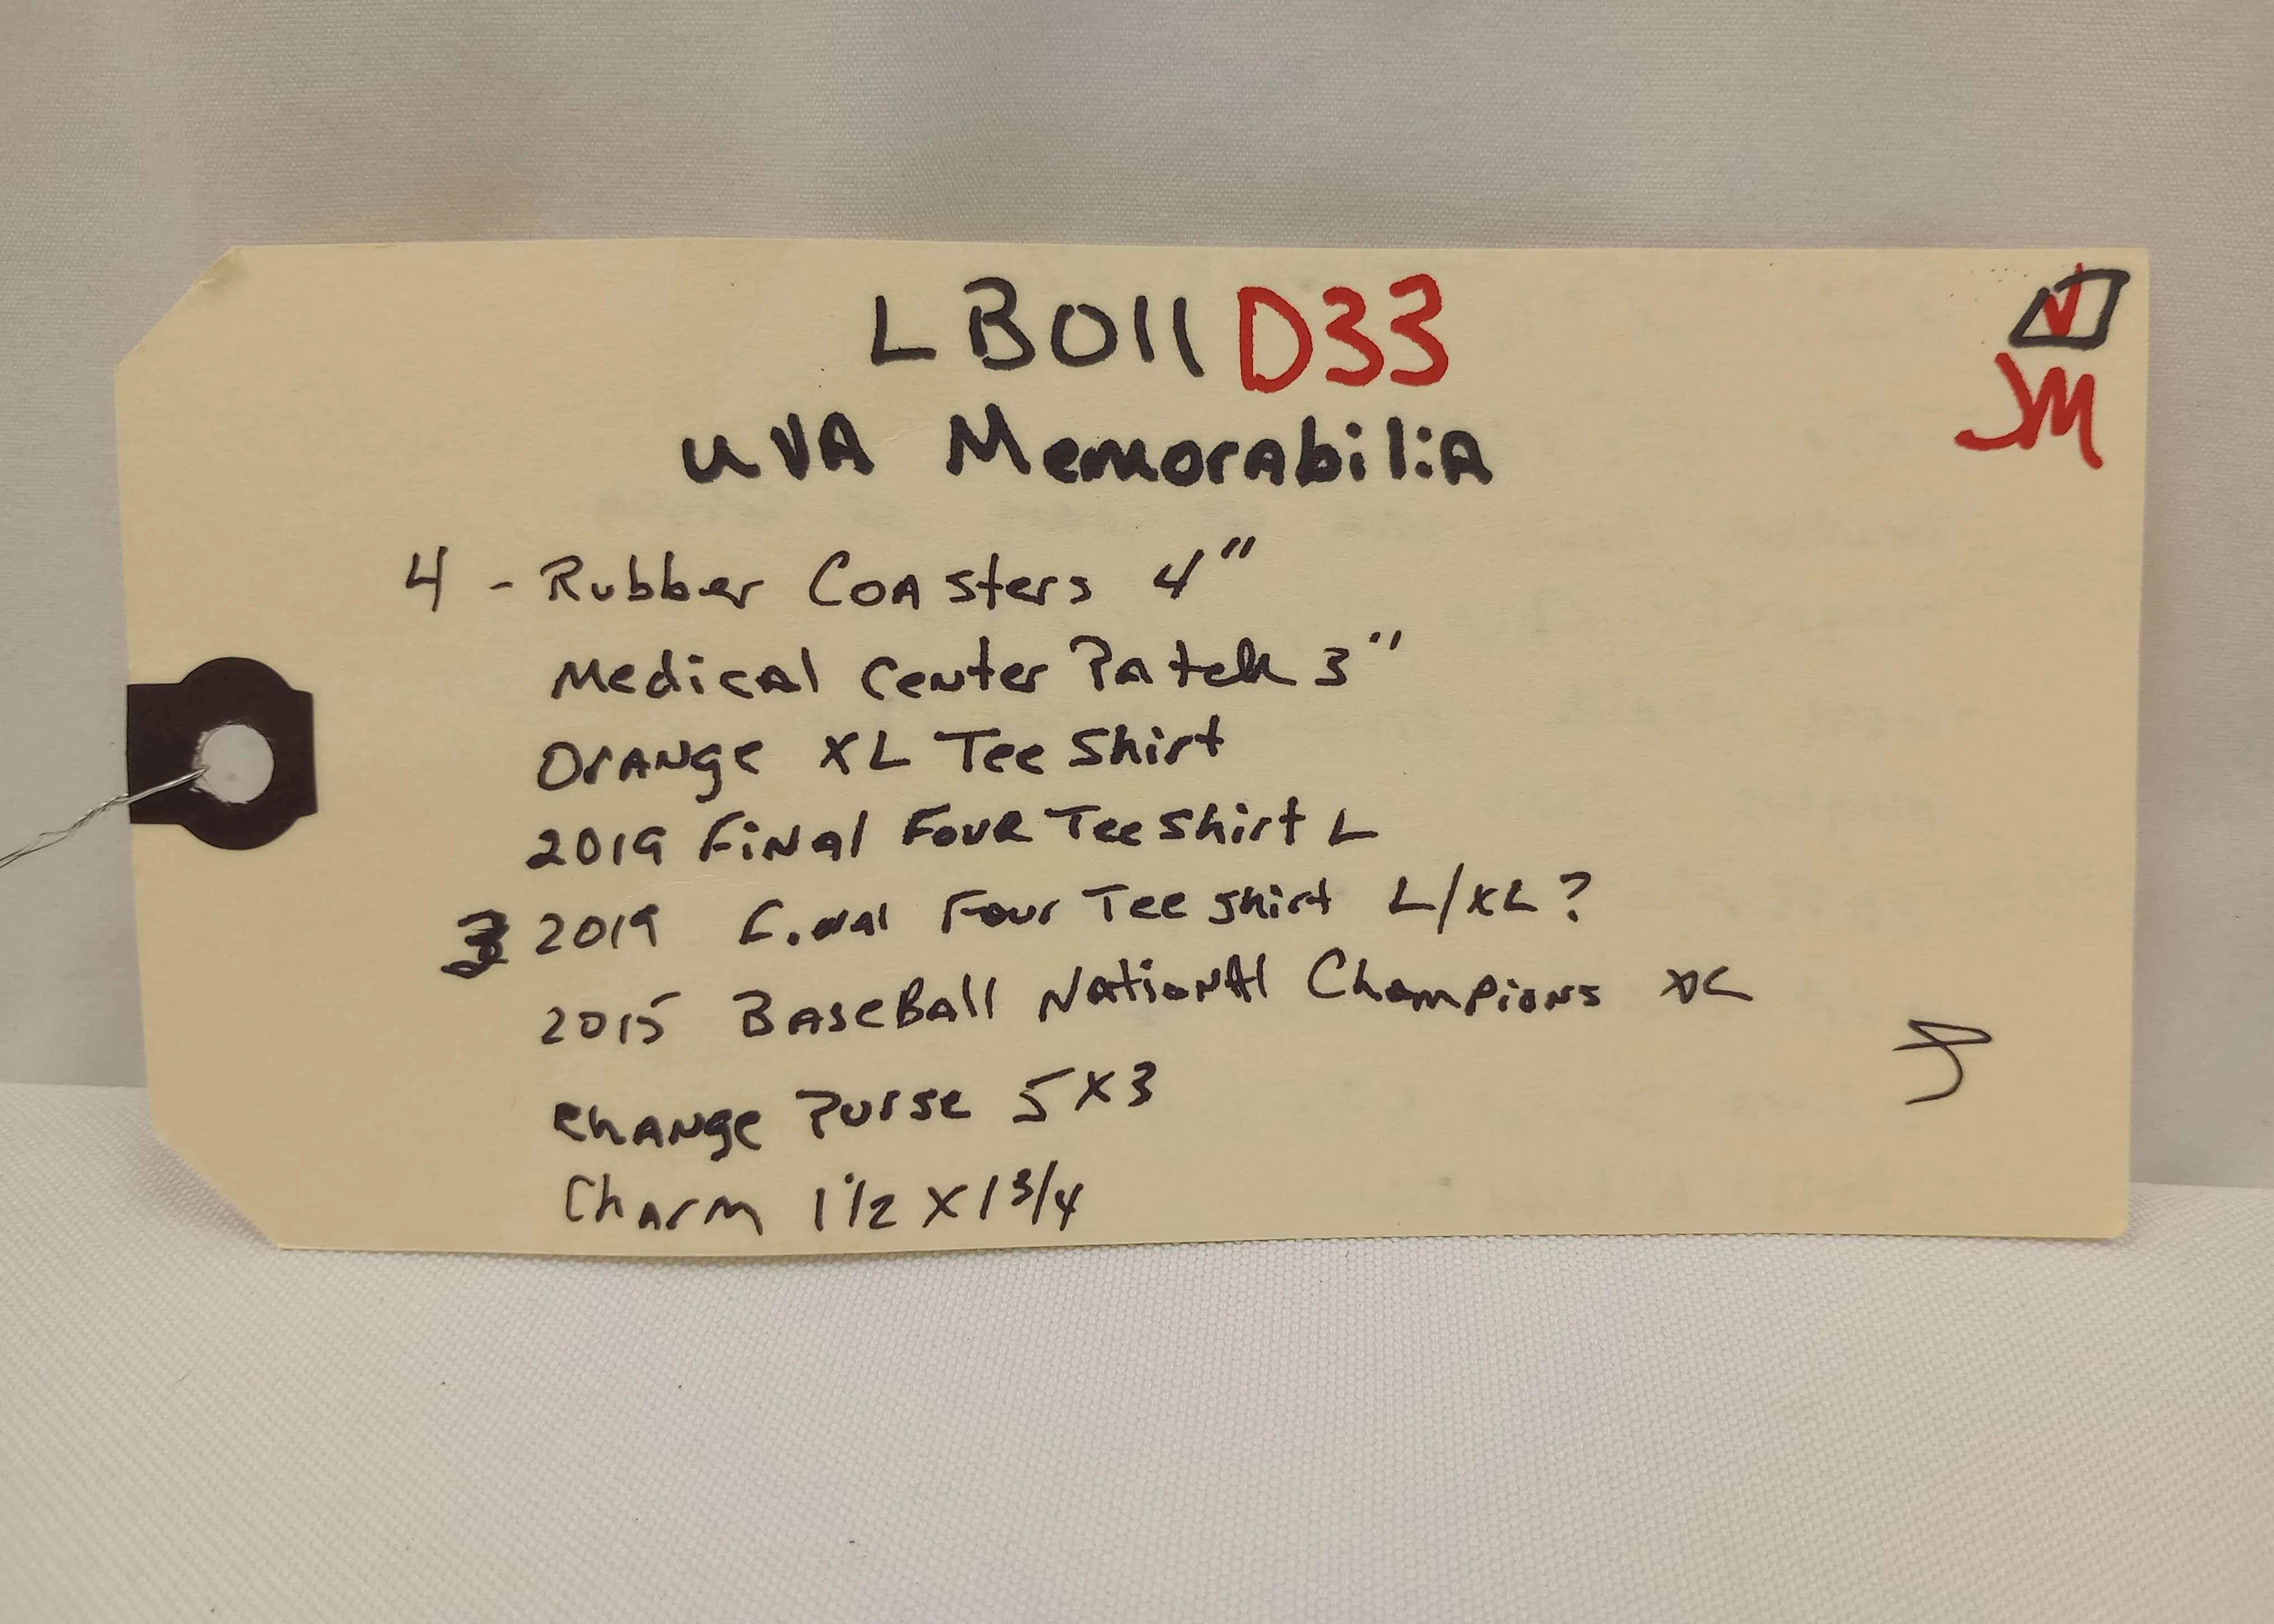 LB011 D33
JM
UVA Memorabilia
4 - Rubber Coasters 4"
Medical Center Patch 3"
Orange XL Tee Shirt
2019 Final Four Tee Shirt L
2019 Final Four Tee Shirt L/XL?
2015 Baseball National Champions XL
Change Purse 5 X 3
Charm 1 1/2 X 1 3/4